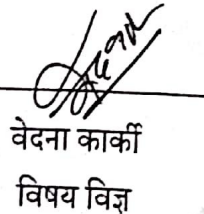 वेदना कार्की
विषय विज्ञ